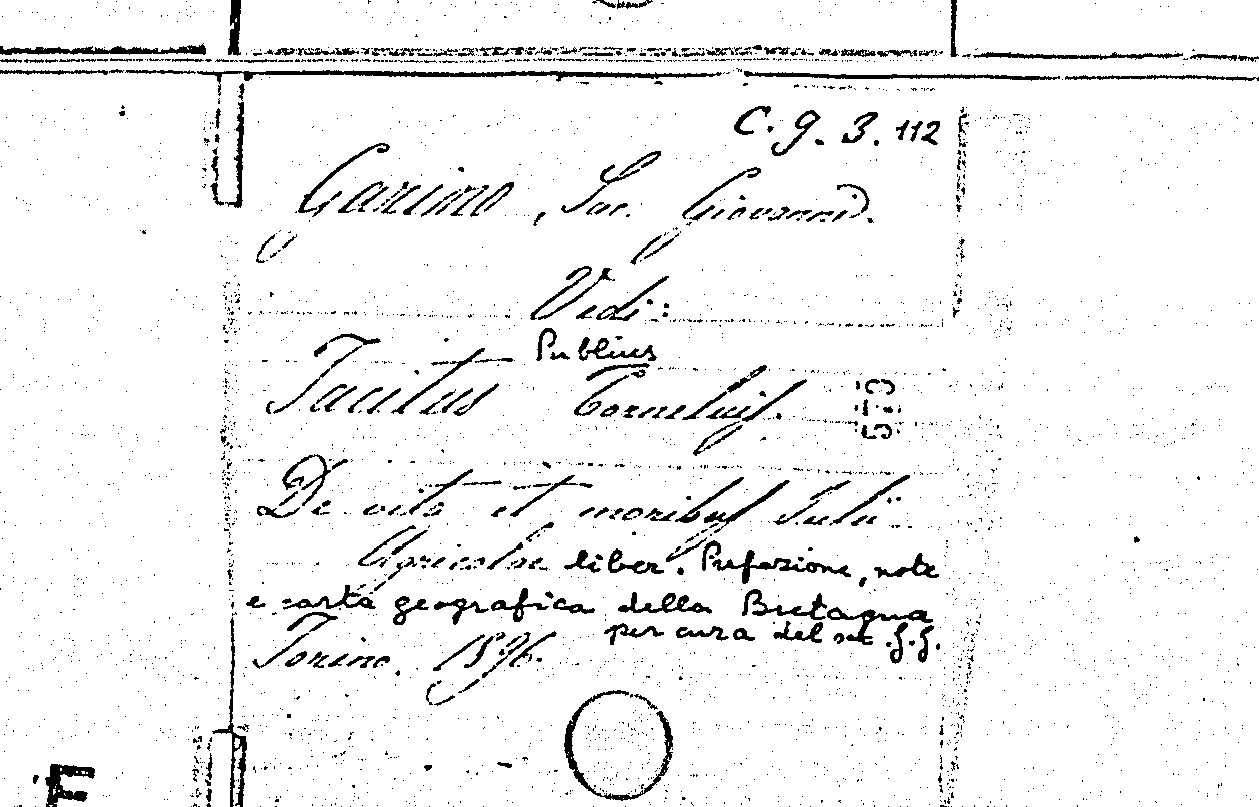 C. g. 3. 112
Garino, Sac. Giovanni.
Vedi:
Publius
Tacitus Cornelius.
573
De vita et moribus Julii
Agricolae liber. Prefazione, note
e carta geografica della Bretagna
per cura del sac. G. G.
Torino. 1896.
E